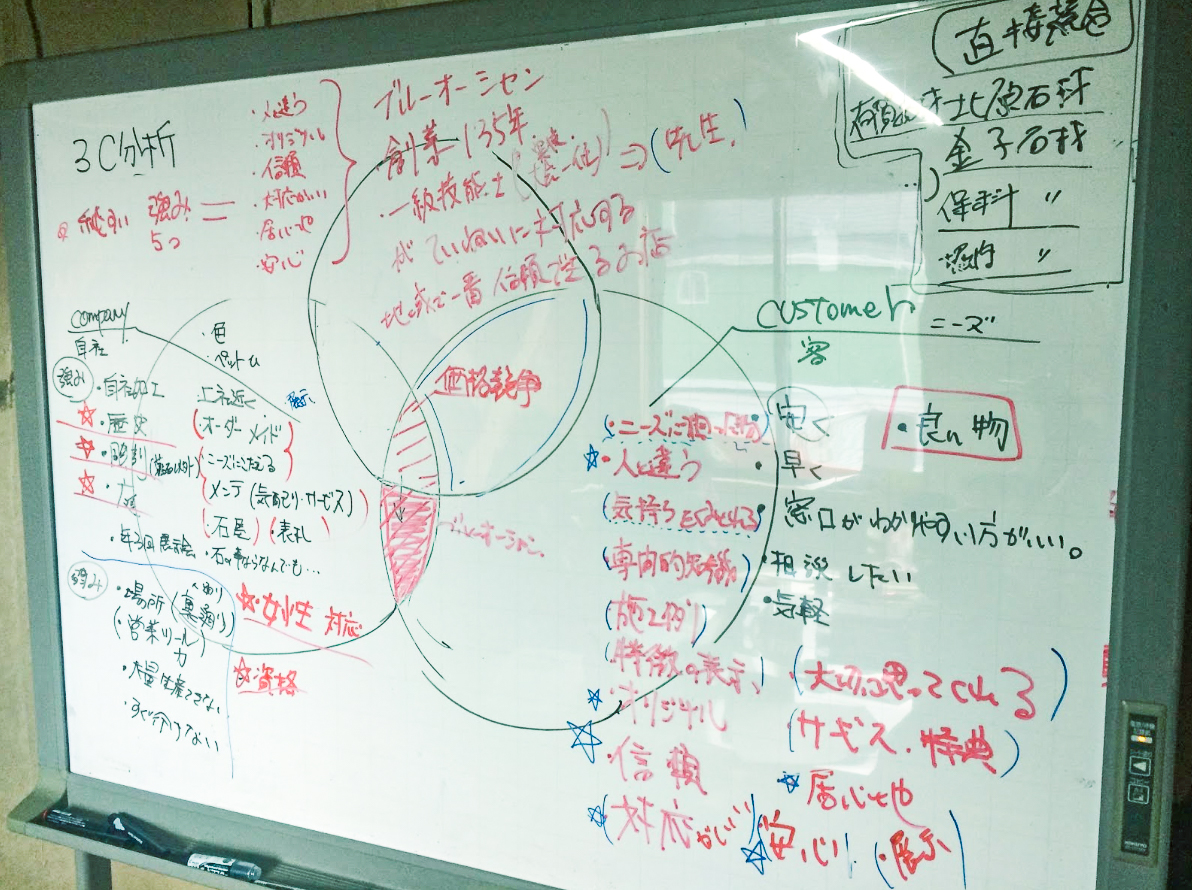 3C分析
強み
5つ
=
・人と違う
・オリジナル
・信頼
・対応がいい
・居心地
・安心
ブルーオーシャン
創業135年
・一級技能士
⇒(先生)
がていねいに対応する
地域で一番信頼できるお店
直接競合
北原石材
金子石材
保科 〃
〃
company
自社
強み
・自社加工
☆・歴史
☆・彫刻
☆
・年3回展示会
・色
・ペット
(オーダーメイド)
ニーズにこたえる
メンテ(気配り・サービス)
(・石屋)(・表札)
・石の事ならなんでも…
弱み
・場所(裏通り)
(・営業ツール)
力
・大量生産できない
☆・女性対応
☆・資格
価格競争
ブルーオーシャン
customer ニーズ
客
安く
・早く
・窓口がわかりやすい方がいい。
・相談したい
・気軽
・良い物
(・ニーズに合った物)
☆・人と違う
(気持ちをくみとれる)
(専門的知識)
(施工例)
・特徴の表示
☆・オリジナル
☆・信頼
☆(対応がいい)
(大切に思ってくれる)
(サービス・特典)
☆・居心地
☆安心
(・展示)